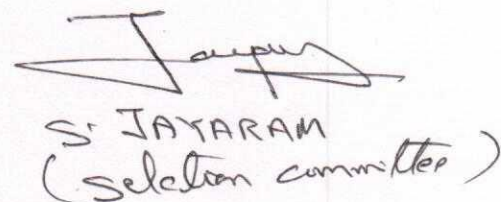 S. JAYARAM
(Selection committee)